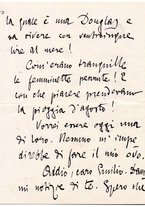 la quale è una Douglas e
sa vivere con venticinque
lire al mese!
Com'erano tranquille
le femminette permite! E
con che piacere prenderanno
la pioggia d'agosto!
Vorrei essere oggi una
di loro. Nessuno m'impe
direbbe di fare il mio ovo.
Addio, caro Emilio. Dam
mi notizie di te. Spero che